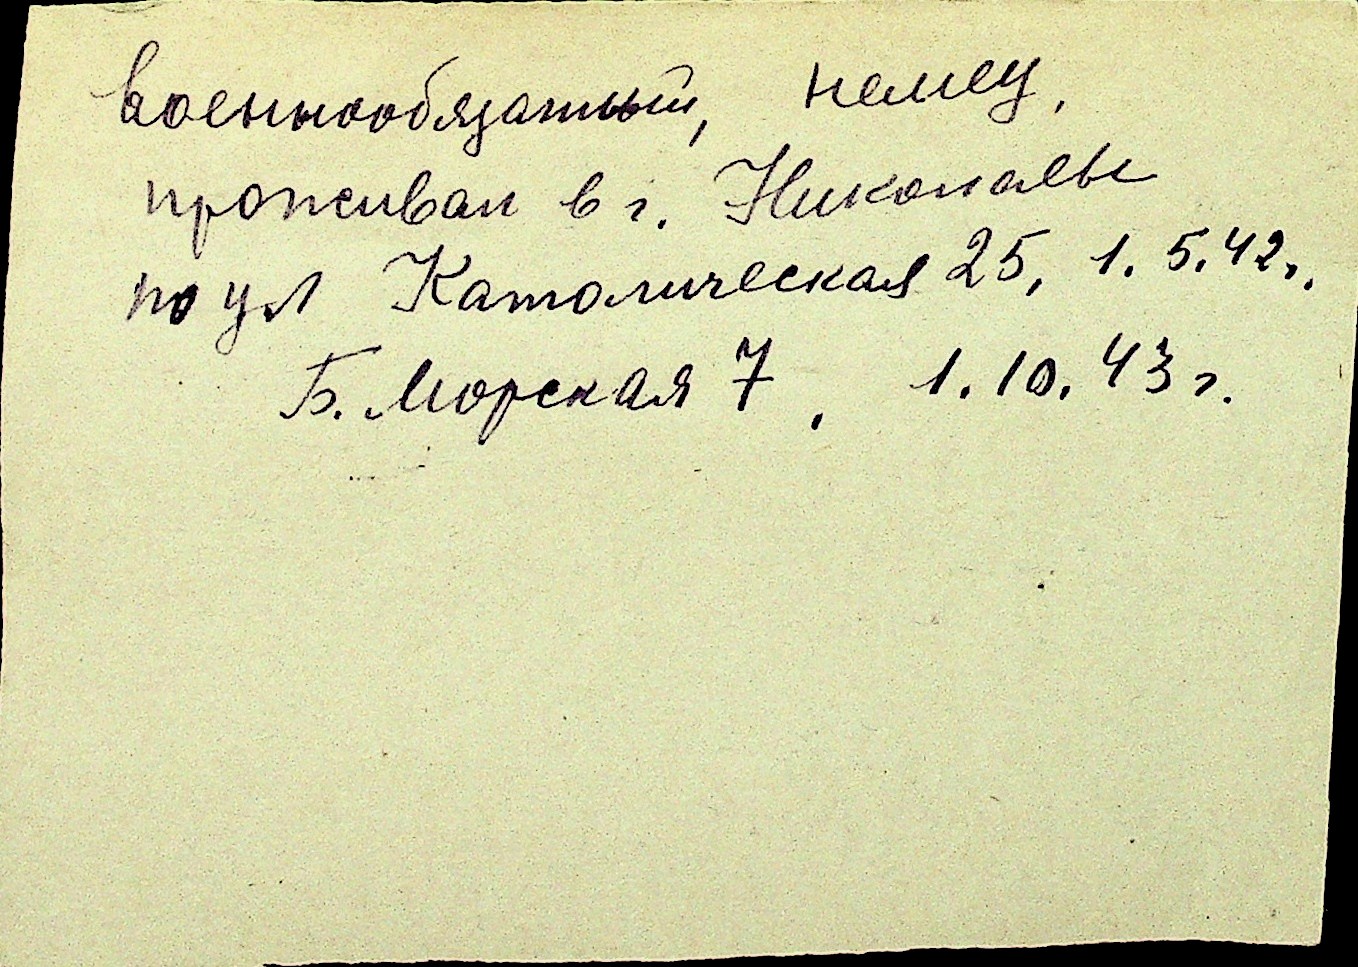 военнообязатный, немец,
проживал в г. Николаеве
по ул Католическая 25, 1.5.42г.
Б. Морская 7, 1.10.43г.